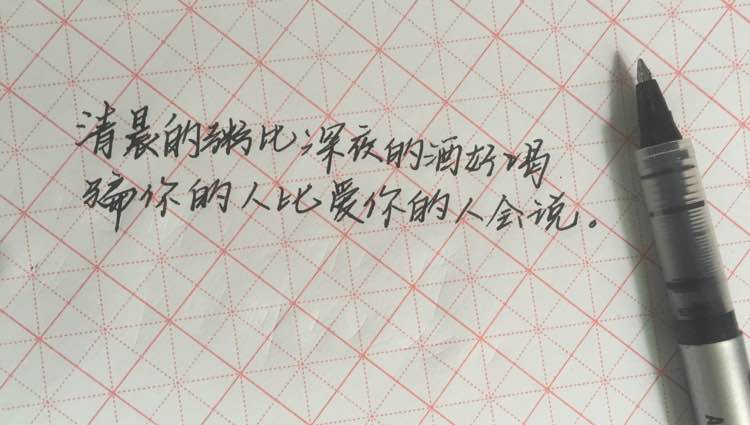 清晨的粥比深夜的酒好喝
骗你的人比爱你的人会说。
A